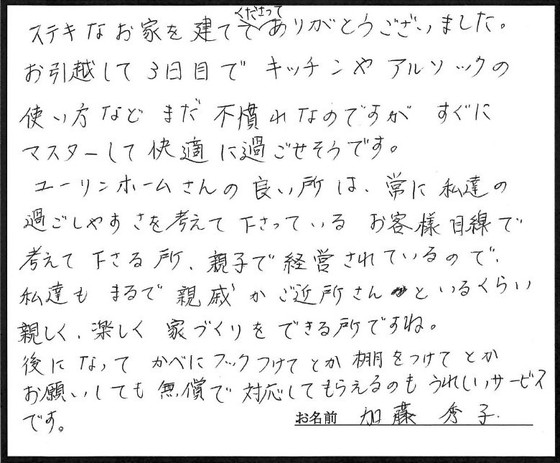 ステキなお家を建ててくださってありがとうございました。
お引越して3日目でキッチンやアルソックの
使い方などまだ不慣れなのですがすぐに
マスターして快適に過ごせそうです。
ユーリンホームさんの良い所は、常に私達の
過ごしやすさを考えて下さっているお客様目線で
考えて下さる所、親子で経営されているので、
私達もまるで親戚かご近所さんといるくらい
親しく、楽しく家づくりをできる所ですね。
後になってかべにフックつけてとか棚をつけてとか
お願いしても無償で対応してもらえるのもうれしいサービス
です。
お名前 加藤 秀子